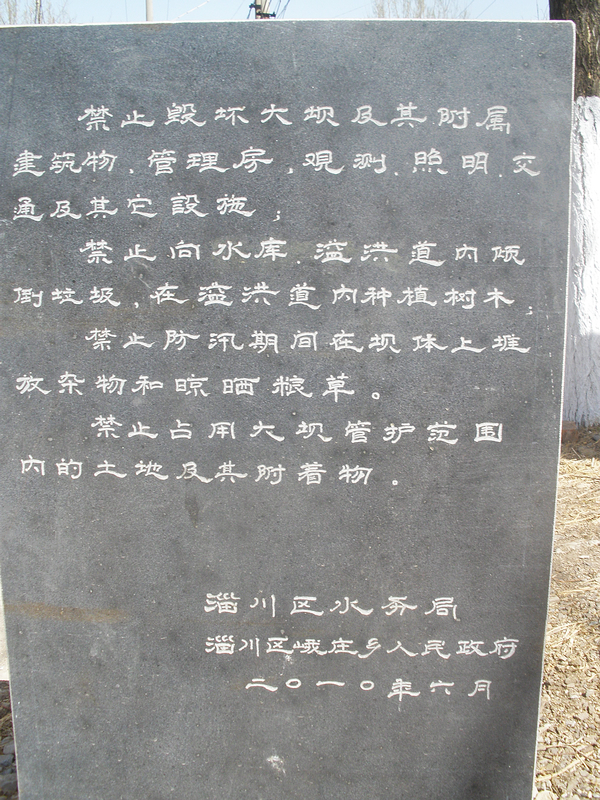 禁止毁坏大坝及其附属
建筑物、管理房、观测、照明、交
通及其它設施；
禁止向水库、溢洪道内倾
倒垃圾，在溢洪道内种植树木；
禁止防汛期间在坝体上堆
放杂物和晾晒粮草。
禁止占用大坝管护范围
内的土地及其附着物。
淄川区水务局
淄川区峨庄乡人民政府
二〇一〇年六月